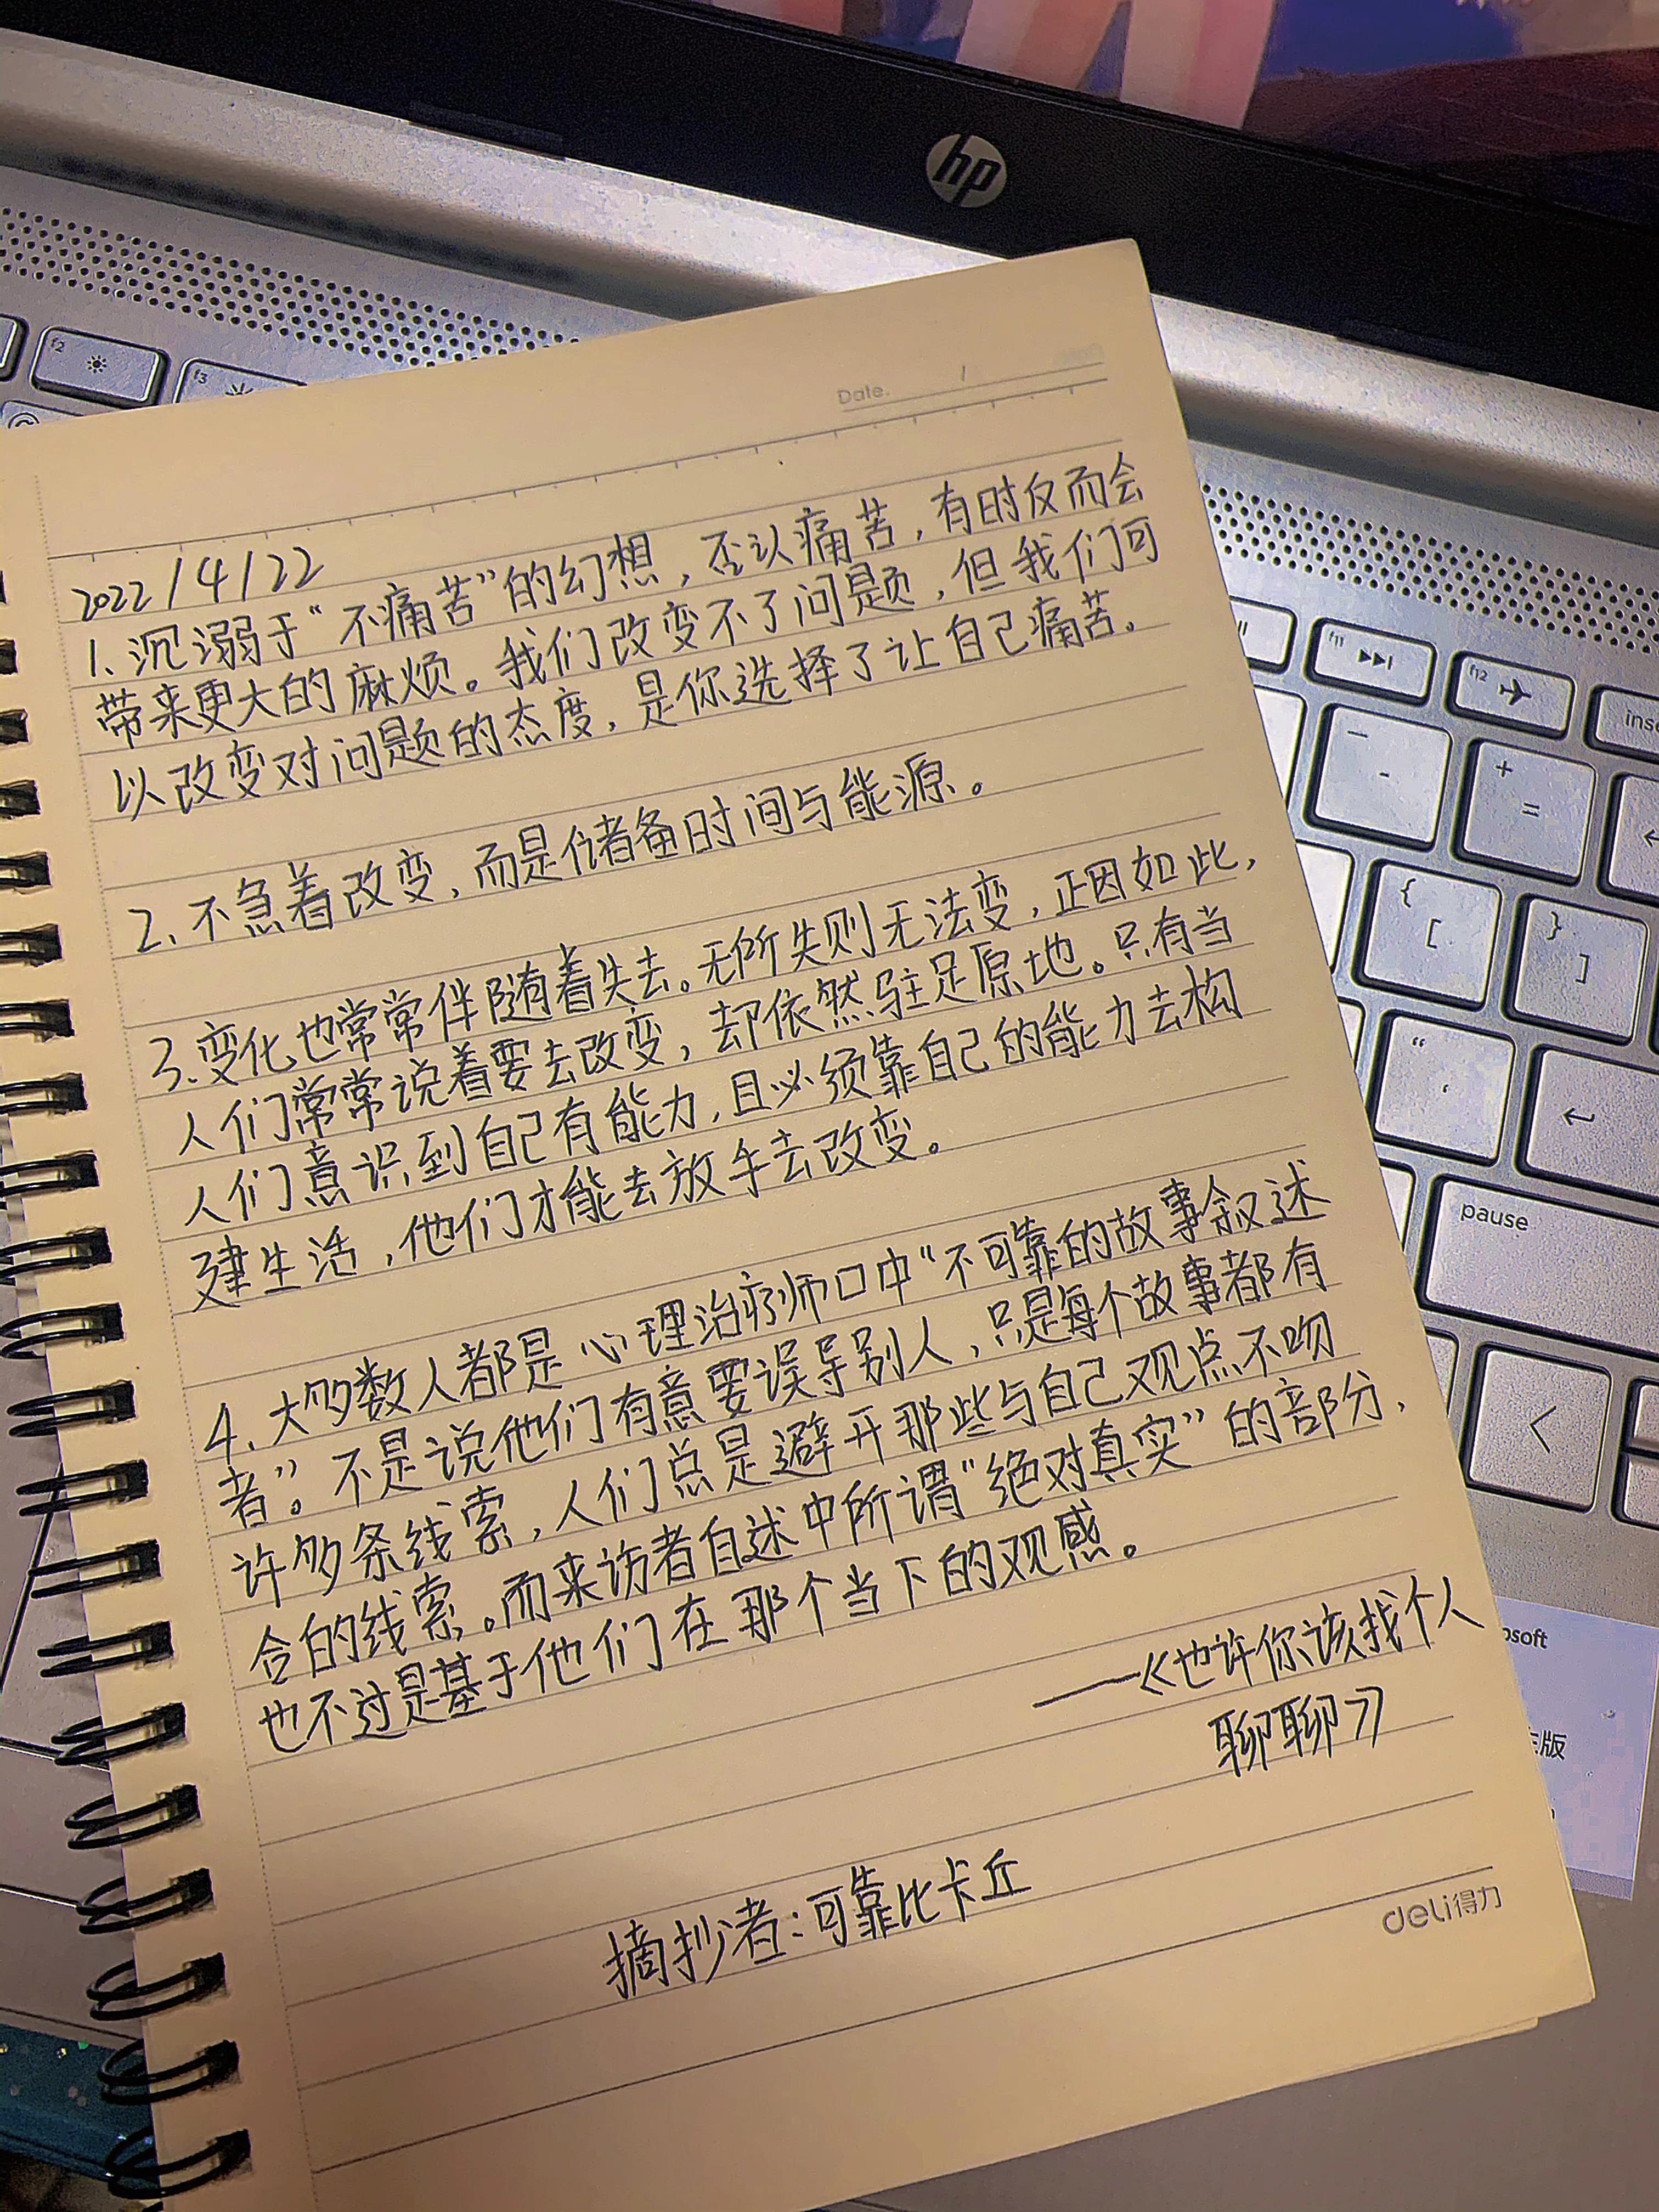 hp
f2
f3
Date. /
2022/4/22
1、沉溺于“不痛苦”的幻想，否认痛苦，有时反而会
带来更大的麻烦。我们改变不了问题，但我们可
以改变对问题的态度，是你选择了让自己痛苦。
2、不急着改变，而是储备时间与能源。
3、变化也常常伴随着失去。无所失则无法变，正因如此，
人们常常说着要去改变，却依然驻足原地。只有当
人们意识到自己有能力，且必须靠自己的能力去构
建生活，他们才能去放手去改变。
4、大多数人都是心理治疗师口中“不可靠的故事叙述
者”。不是说他们有意要误导别人，只是每个故事都有
许多条线索，人们总是避开那些与自己观点不吻
合的线索。而来访者自述中所谓“绝对真实”的部分，
也不过是基于他们在那个当下的观感。
——《也许你该找个人
聊聊》
摘抄者：可靠比卡丘
deli得力
f11
f12
inse
— -
+ =
{ [
} ]
“ ‘
pause
<
osoft
版